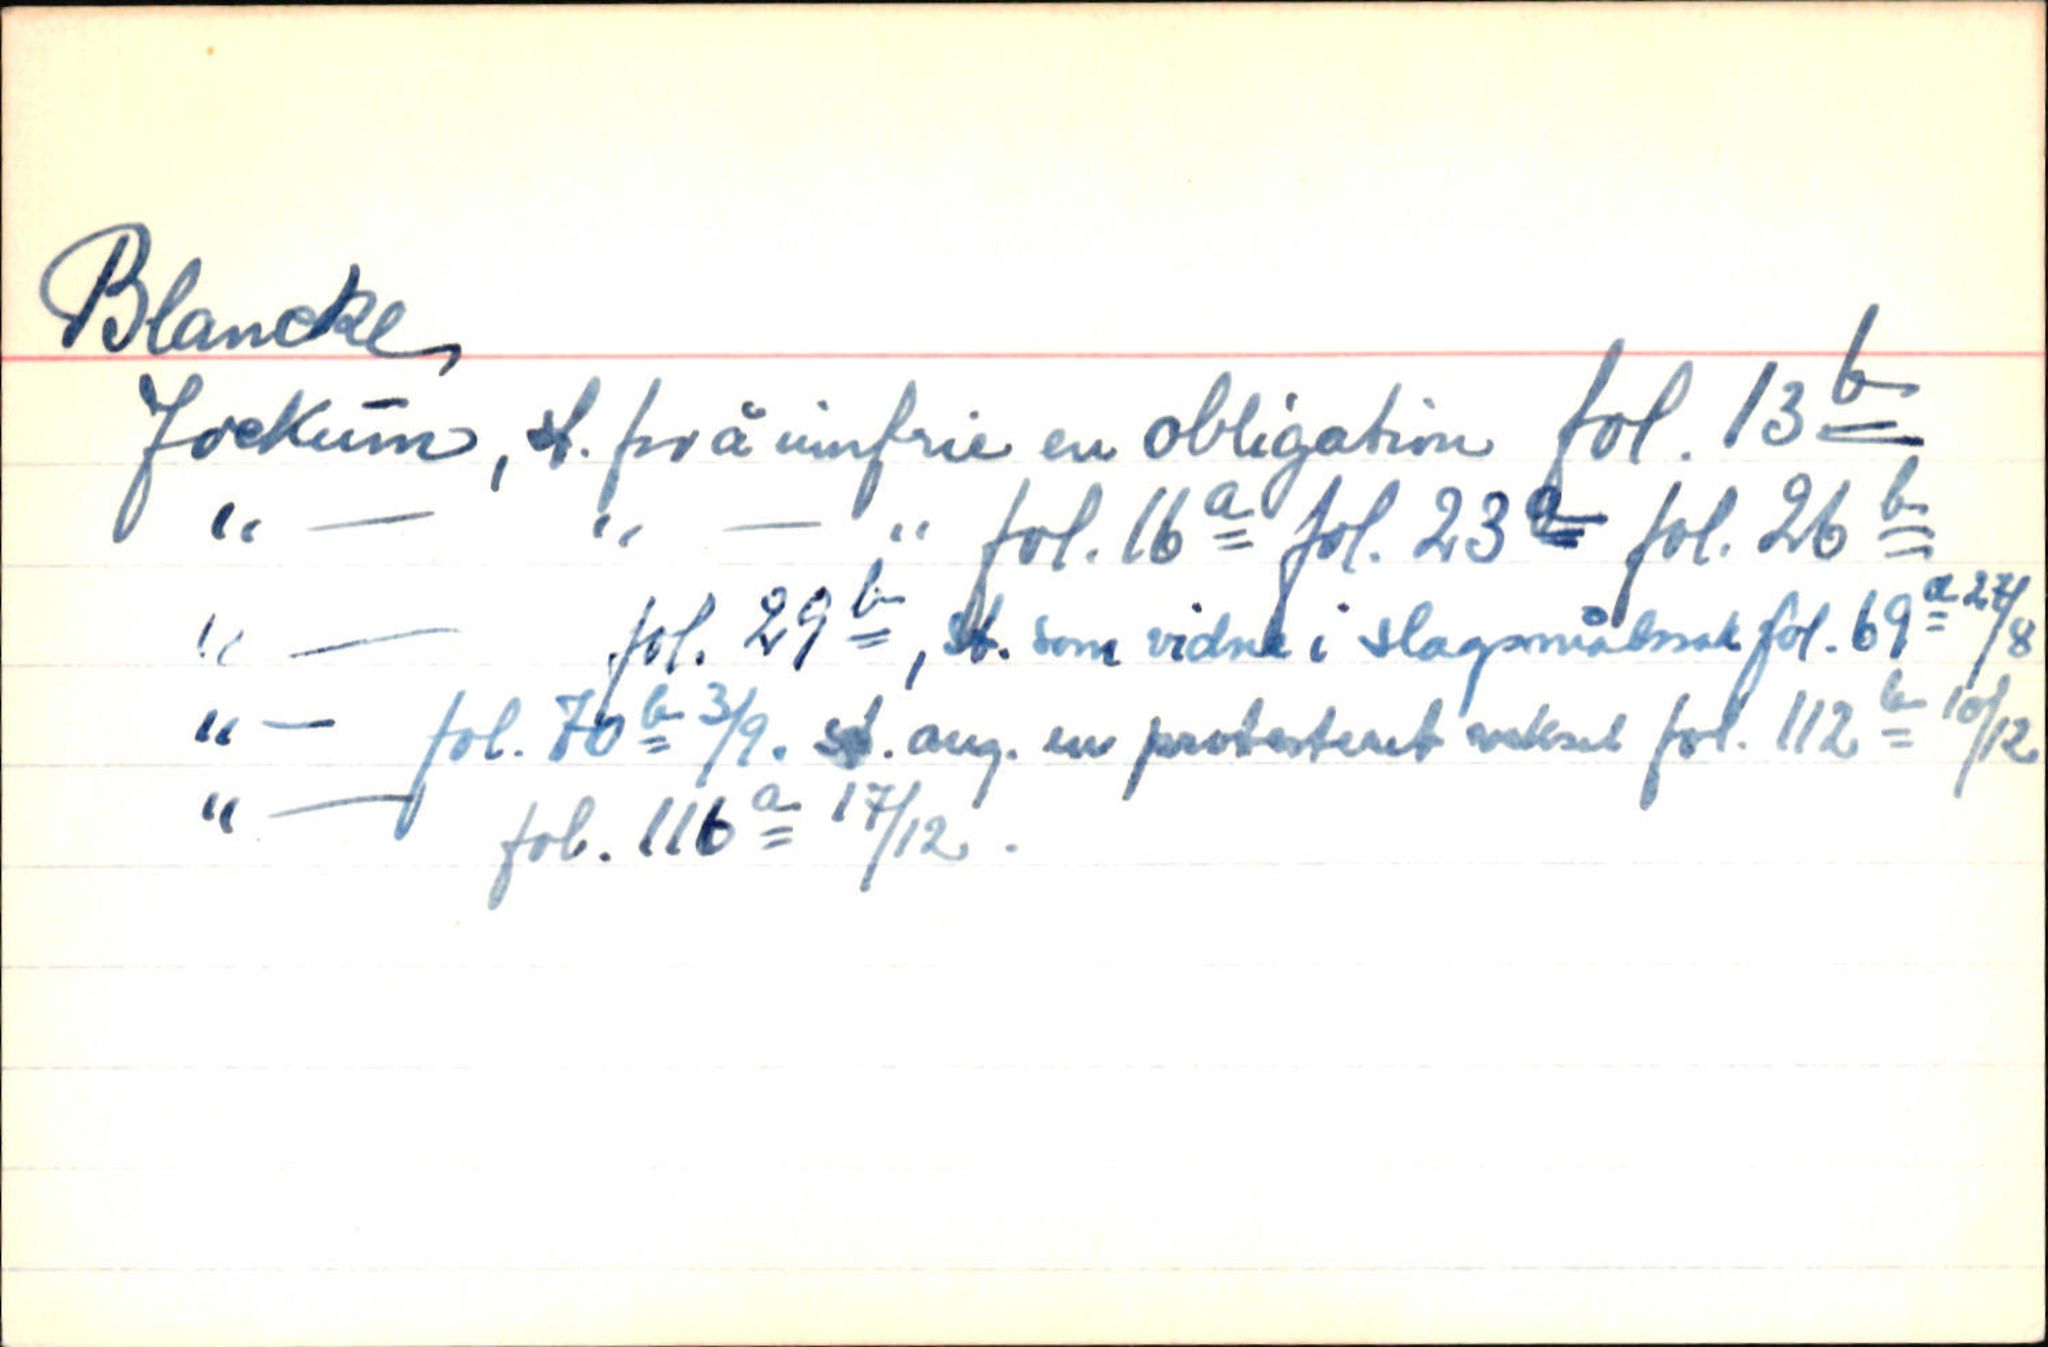 Blancke,
Jockum, st. for å innfrie en obligation fol. 13 b
" — " — " fol. 16 a fol. 23 a fol. 26 b
" — fol. 29 b, st. som vidne i slagsmålssak fol. 69 a 27/8
" — fol. 70 b 3/9. st. ang. en protesteret veksel fol. 112 b 10/12
" — fol. 116 a 17/12.